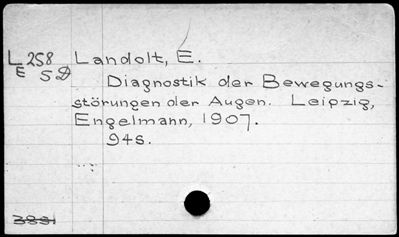 L 258 Landolt, E.
E 5D Diagnostik der Bewegungs-
störungen der Augen. Leipzig,
Engelmann, 1907.
94s.
3881